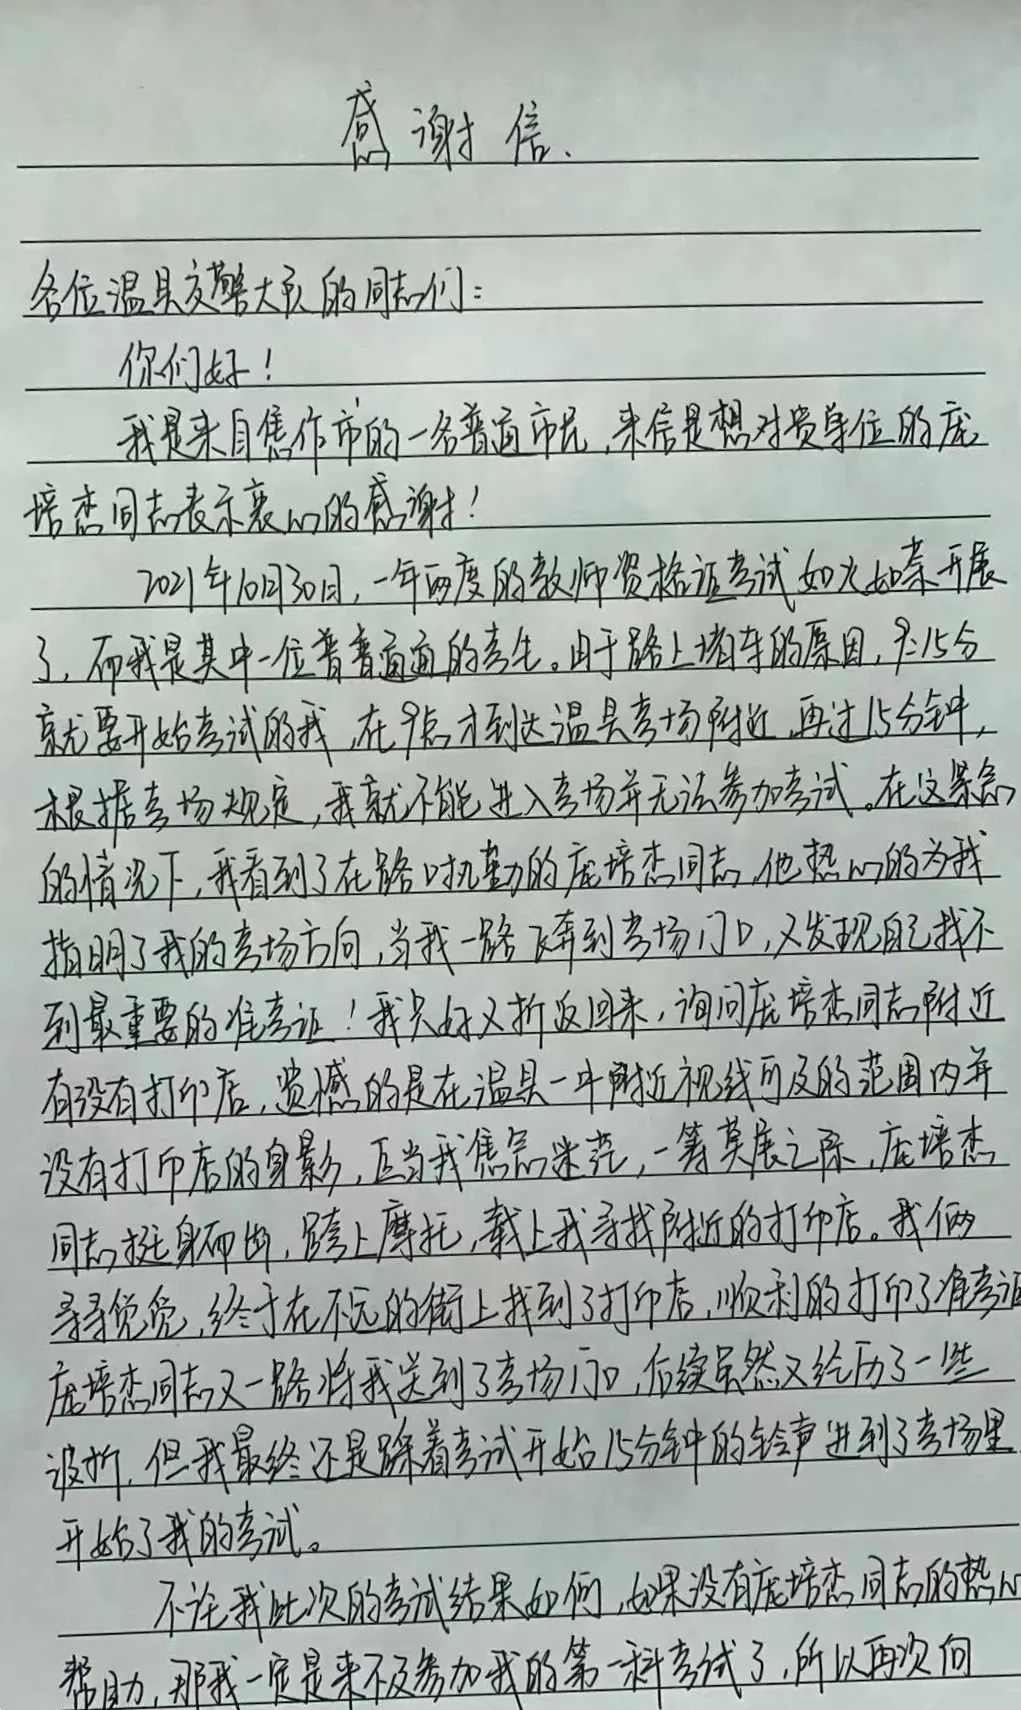 感谢信.
各位温县交警大队的同志们：
你们好！
我是来自焦作市的一名普通市民，来信是想对贵单位的庞
培杰同志表示衷心的感谢！
2021年10月30日，一年两度的教师资格证考试如火如荼开展
了，而我是其中一位普普通通的考生。由于路上堵车的原因，9:15分
就要开始考试的我，在9点才到达温县考场附近，再过15分钟，
根据考场规定，我就不能进入考场并无法参加考试。在这紧急
的情况下，我看到了在路口执勤的庞培杰同志，他热心的为我
指明了我的考场方向，当我一路飞奔到考场门口，又发现自己找不
到最重要的准考证！我只好又折返回来，询问庞培杰同志附近
有没有打印店，遗憾的是在温县一中附近视线可及的范围内并
没有打印店的身影，正当我焦急迷茫，一筹莫展之际，庞培杰
同志挺身而出，跨上摩托，载上我寻找附近的打印店。我俩
寻寻觅觅，终于在不远的街上找到了打印店，顺利的打印了准考证
庞培杰同志又一路将我送到了考场门口，后续虽然又经历了一些
波折，但我最终还是踩着考试开始15分钟的铃声进到了考场里
开始了我的考试。
不论我此次的考试结果如何，如果没有庞培杰同志的热心
帮助，那我一定是来不及参加我的第一科考试了，所以再次向